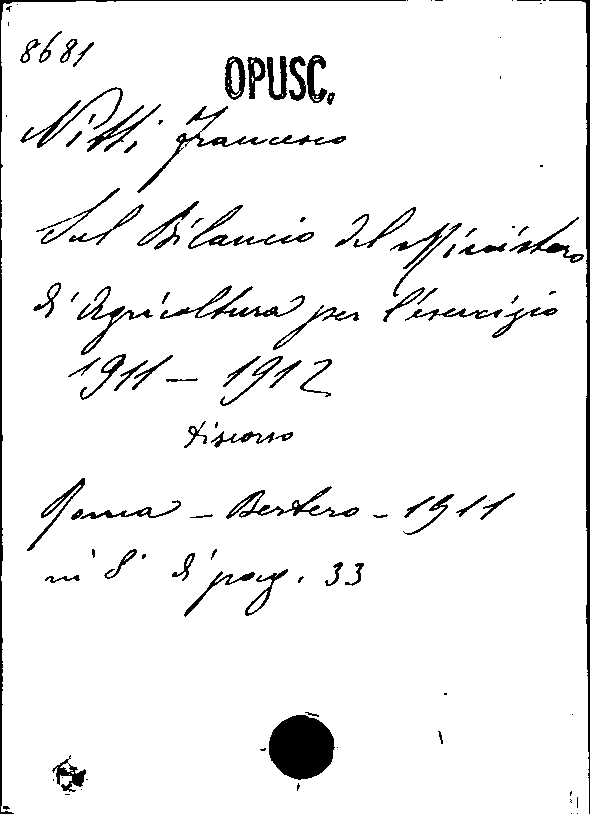 8681
OPUSC.
Nitti Francesco
Sul Bilancio del Ministero
di Agricoltura per l'esercizio
1911 - 1912
discorso
Roma - Bertero - 1911
in 8° di pag. 33